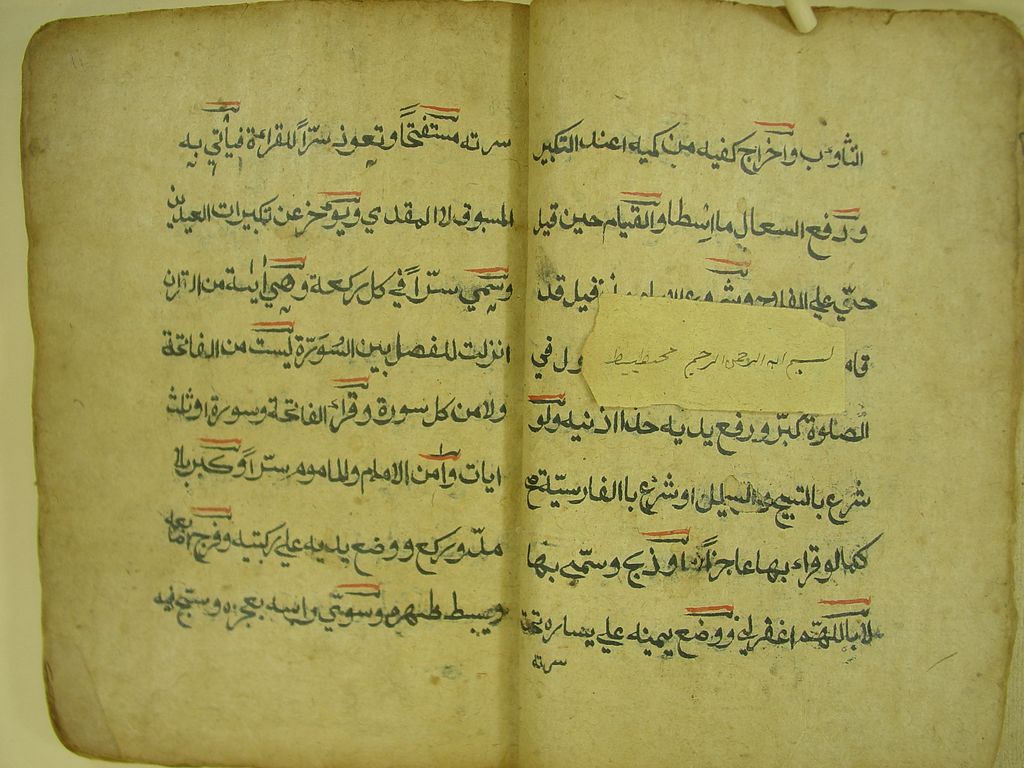 التثاوب واخراج كفيه من كميه اعند التكبير
ودفع السعال ما اسطا والقيام حين قيل
حتي علي الفلاح وشروع قيل قد
قام
بسم الله الرحمن الرحيم
ول في
الصلوة كبر ورفع يديه حذا اذنيه ولو
شرع بالتسبيح او شرع باالفارسيّة صح
كما لو قراء بها عاجزاً او ذبح وسمّي بها
لا باللهم اغفرلي ووضع يمينه علي يساره تحت
سرته
سرته مستفتحاً وتعوذ سرّاً للقراءة فيأتي به
المسبوق لا المقتدي ويوخر عن تكبيرات العيدين
وسمّي سرّاً في كل ركعة وهي اية من القران
انزلت للفصل بين السورة ليست من الفاتحة
ولا من كل سورة وقراء الفاتحة وسورة او ثلث
ايات وامن الامام والماموم سرّاً وكبر بلا
مدّ وركع ووضع يديه علي ركبتيه وفرج اصابعه
وبسط ظهره وسوّي راسه بعجزه وسبح فيه